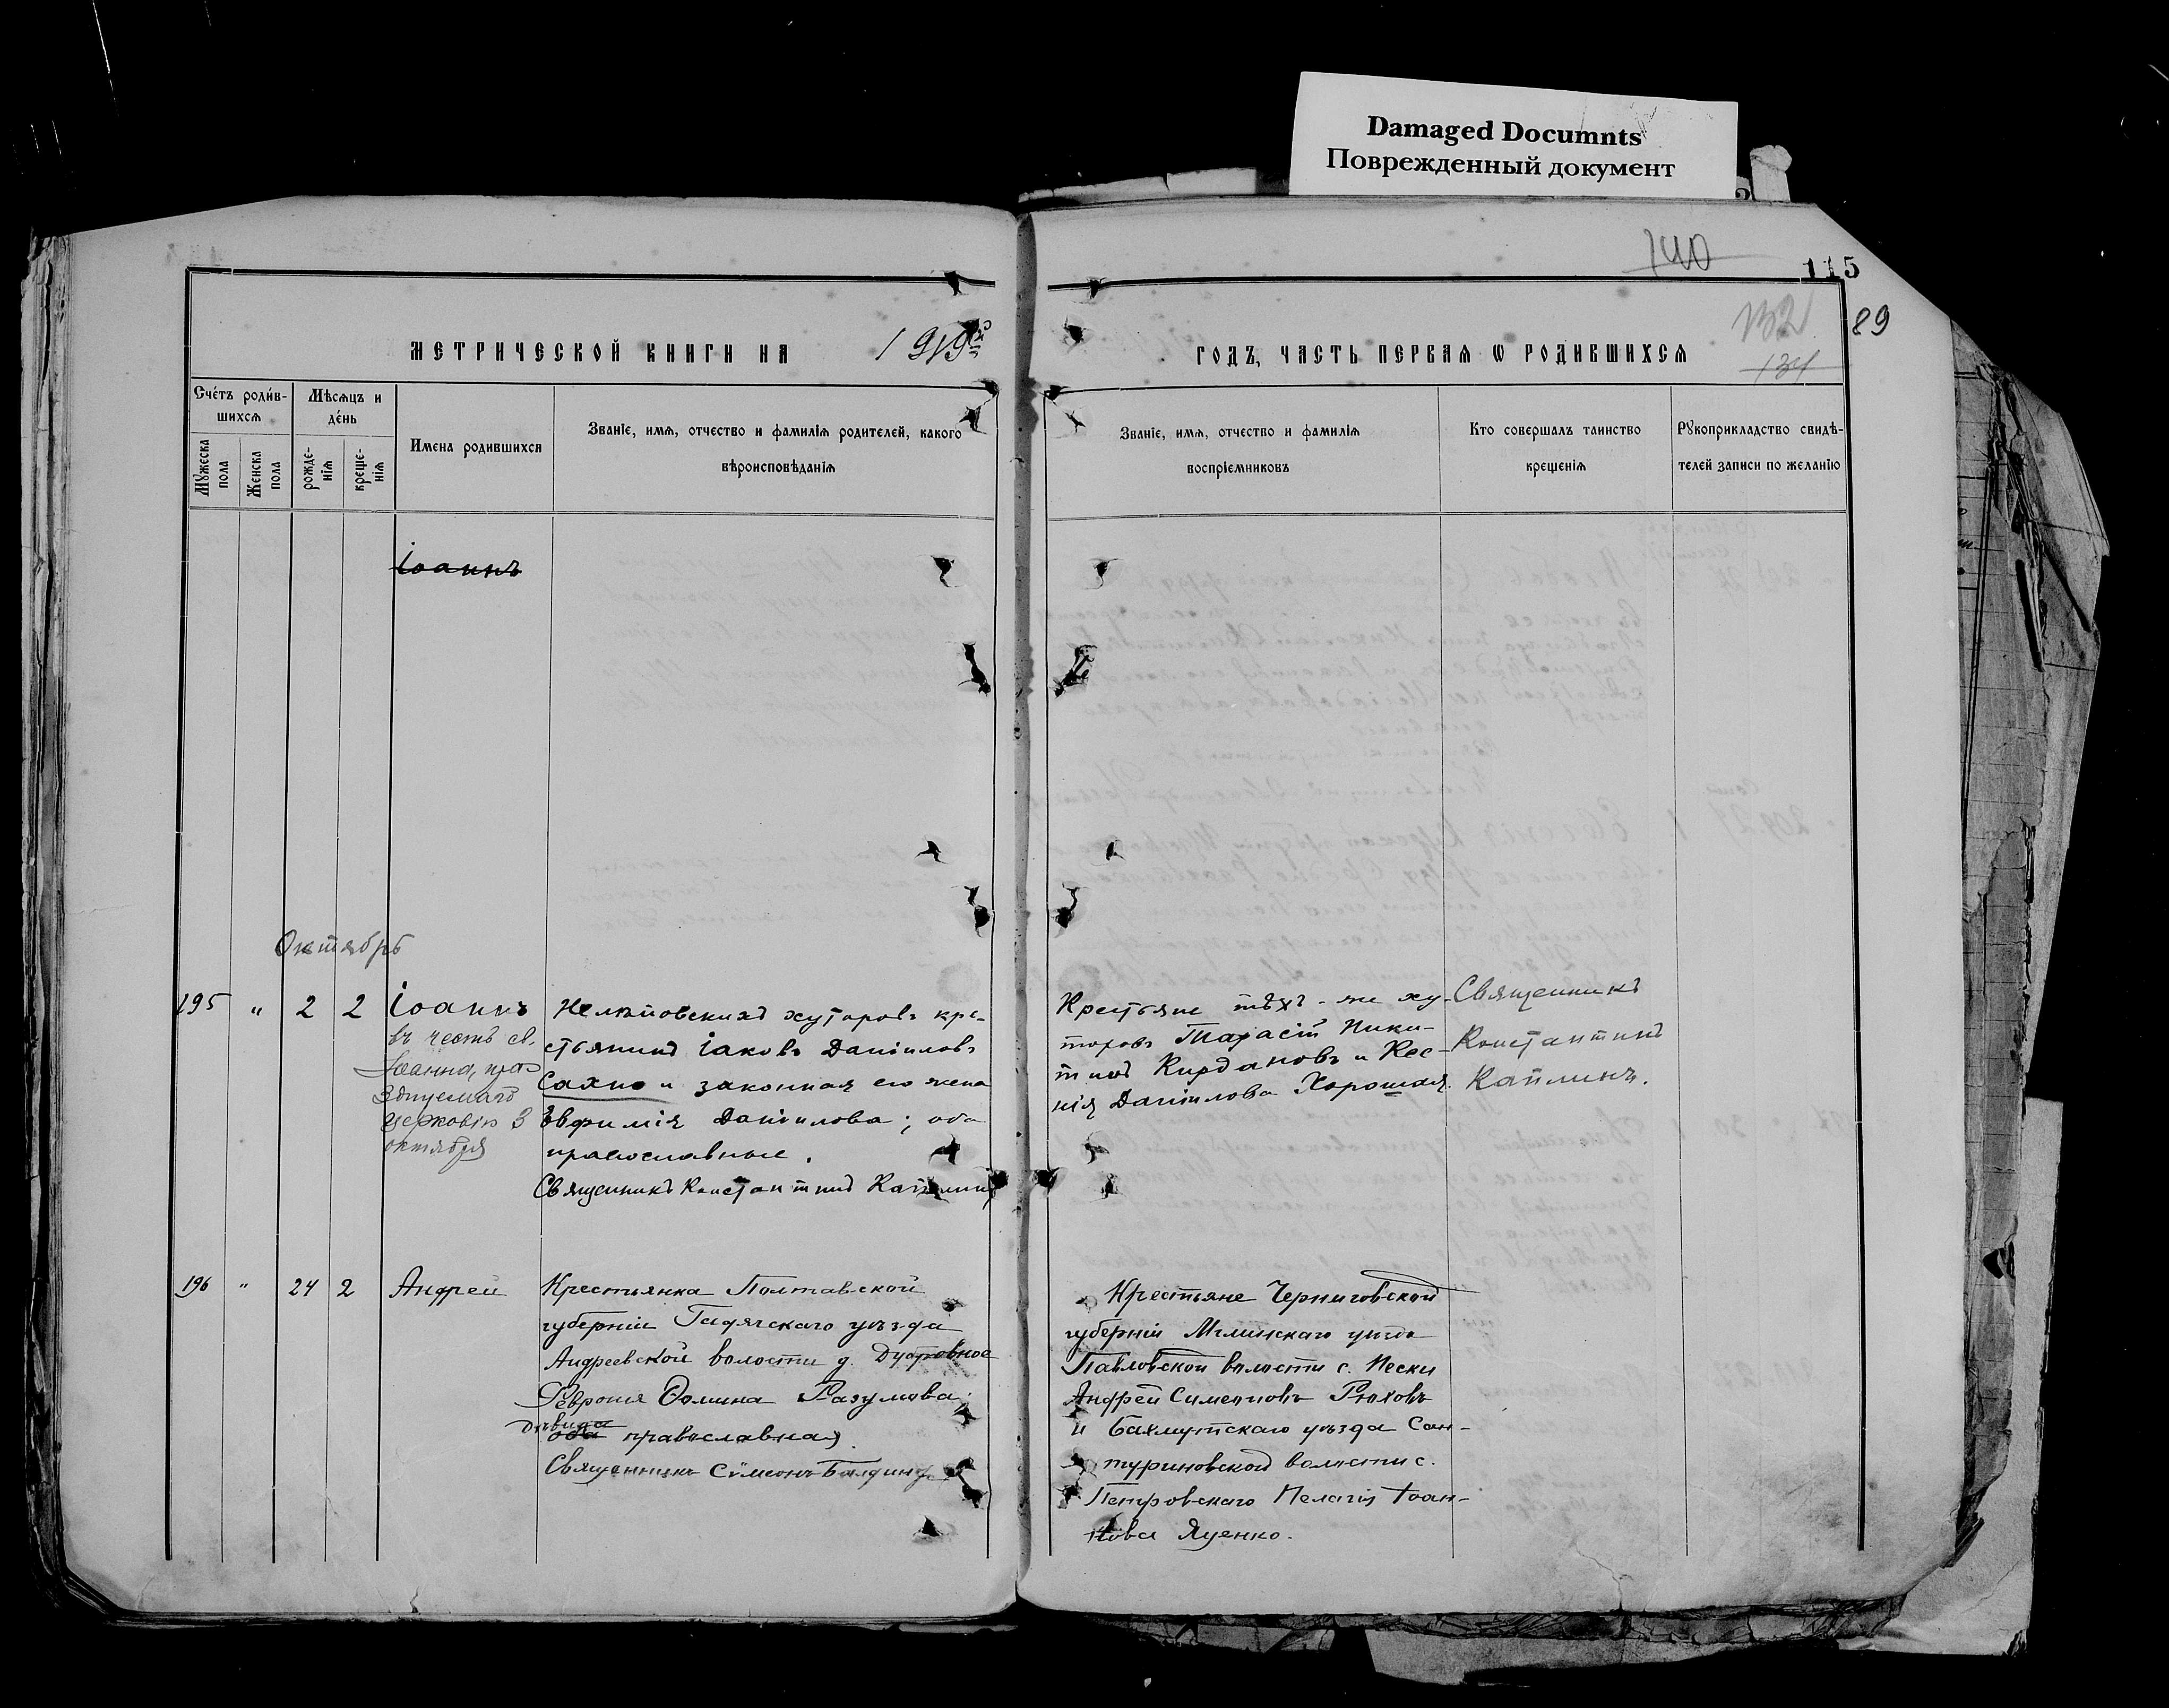 Damaged Documnts
Поврежденный документ
140
115
132
134
89
МЕТРИЧЕСКОЙ КНИГИ НА 1919
ГОДЪ, ЧАСТЬ ПЕРВАЯ Ѡ РОДИВШИХСЯ
Счетъ родив-
шихся
Мѣсяцъ и
день
Мужеска
пола
Женска
пола
рожде-
нія
креще-
нія
Имена родившихся
Званіе, имя, отчество и фамилія родителей, какого
вѣроисповѣданія
Званіе, имя, отчество и фамилія
воспріемниковъ
Кто совершалъ таинство
крещенія
Рукоприкладство свидѣ-
телей записи по желанію
Іоаннъ
Октябрь
195 " 2 2 Іоаннъ
въ честь св.
Іоанна, пра-
зднуемаго
церковію 3
октября
хуторовъ кре-
стьянинъ Іаковъ Даніиловъ
Сахно и законная его жена
Евфимія Даніилова; оба
православные.
Священникъ Константинъ Каплинъ
Крестьяне тѣхъ-же ху-
торовъ Тарасій Ники-
тинъ Кирдановъ и Ксе-
нія Даніилова Хорошая.
Священникъ
Константинъ
Каплинъ.
196 " 24 2 Андрей
Крестьянка Полтавской
губерніи Гадячскаго уѣзда
Андреевской волости д. Дубровное
Феврония Фомина Разумова;
дѣвица
оба православная.
Священникъ Сѵмеонъ
Крестьяне Черниговской
губерніи Мглинскаго уѣзда
Павловской волости с. Пески
Андрей Симеоновъ Рюховъ
и Бахмутскаго уѣзда Сан-
туриновской волости с.
Петровскаго Пелагія Іоан-
нова Яценко.